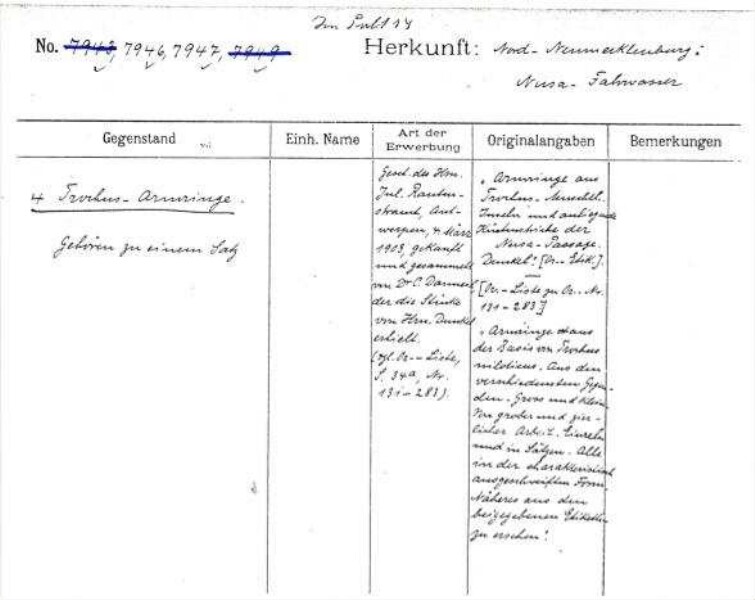 Im Pult 14
No. 7943, 7946, 7947, 7949 Herkunft: Nord-Neumecklenburg:
Nusa-Fahrwasser
Gegenstand Einh. Name Art der Erwerbung Originalangaben Bemerkungen
4 Trochus-Armringe.
Gehören zu einem Satz
Gesch. des Hrn.
Jul. Rauten-
strauch, Ant-
werpen, 4 März
1903, gekauft
und gesammelt
von Dr C. Danneil
der die Stücke
von Hrn. Dunkel
erhielt.
(vgl. Or.-Liste,
S. 34a, Nr.
131-283).
"Armringe aus
Trochus-Muschel.
Inseln und anliegende
Küstenstriche der
Nusa-Passage.
Dunkel". [Or.-Etik.].
[Or.-Liste zu Or.-Nr.
131-283]
"Armringe aus
der Basis von Trochus
niloticus. Aus den
verschiedensten Gegen-
den. Gross und klein.
Von grober und zier-
licher Arbeit. Einzeln
und in Sätzen. Alle
in der charakteristisch
ausgeschweiften Form.
Näheres aus den
beigegebenen Etiketten
zu ersehen".